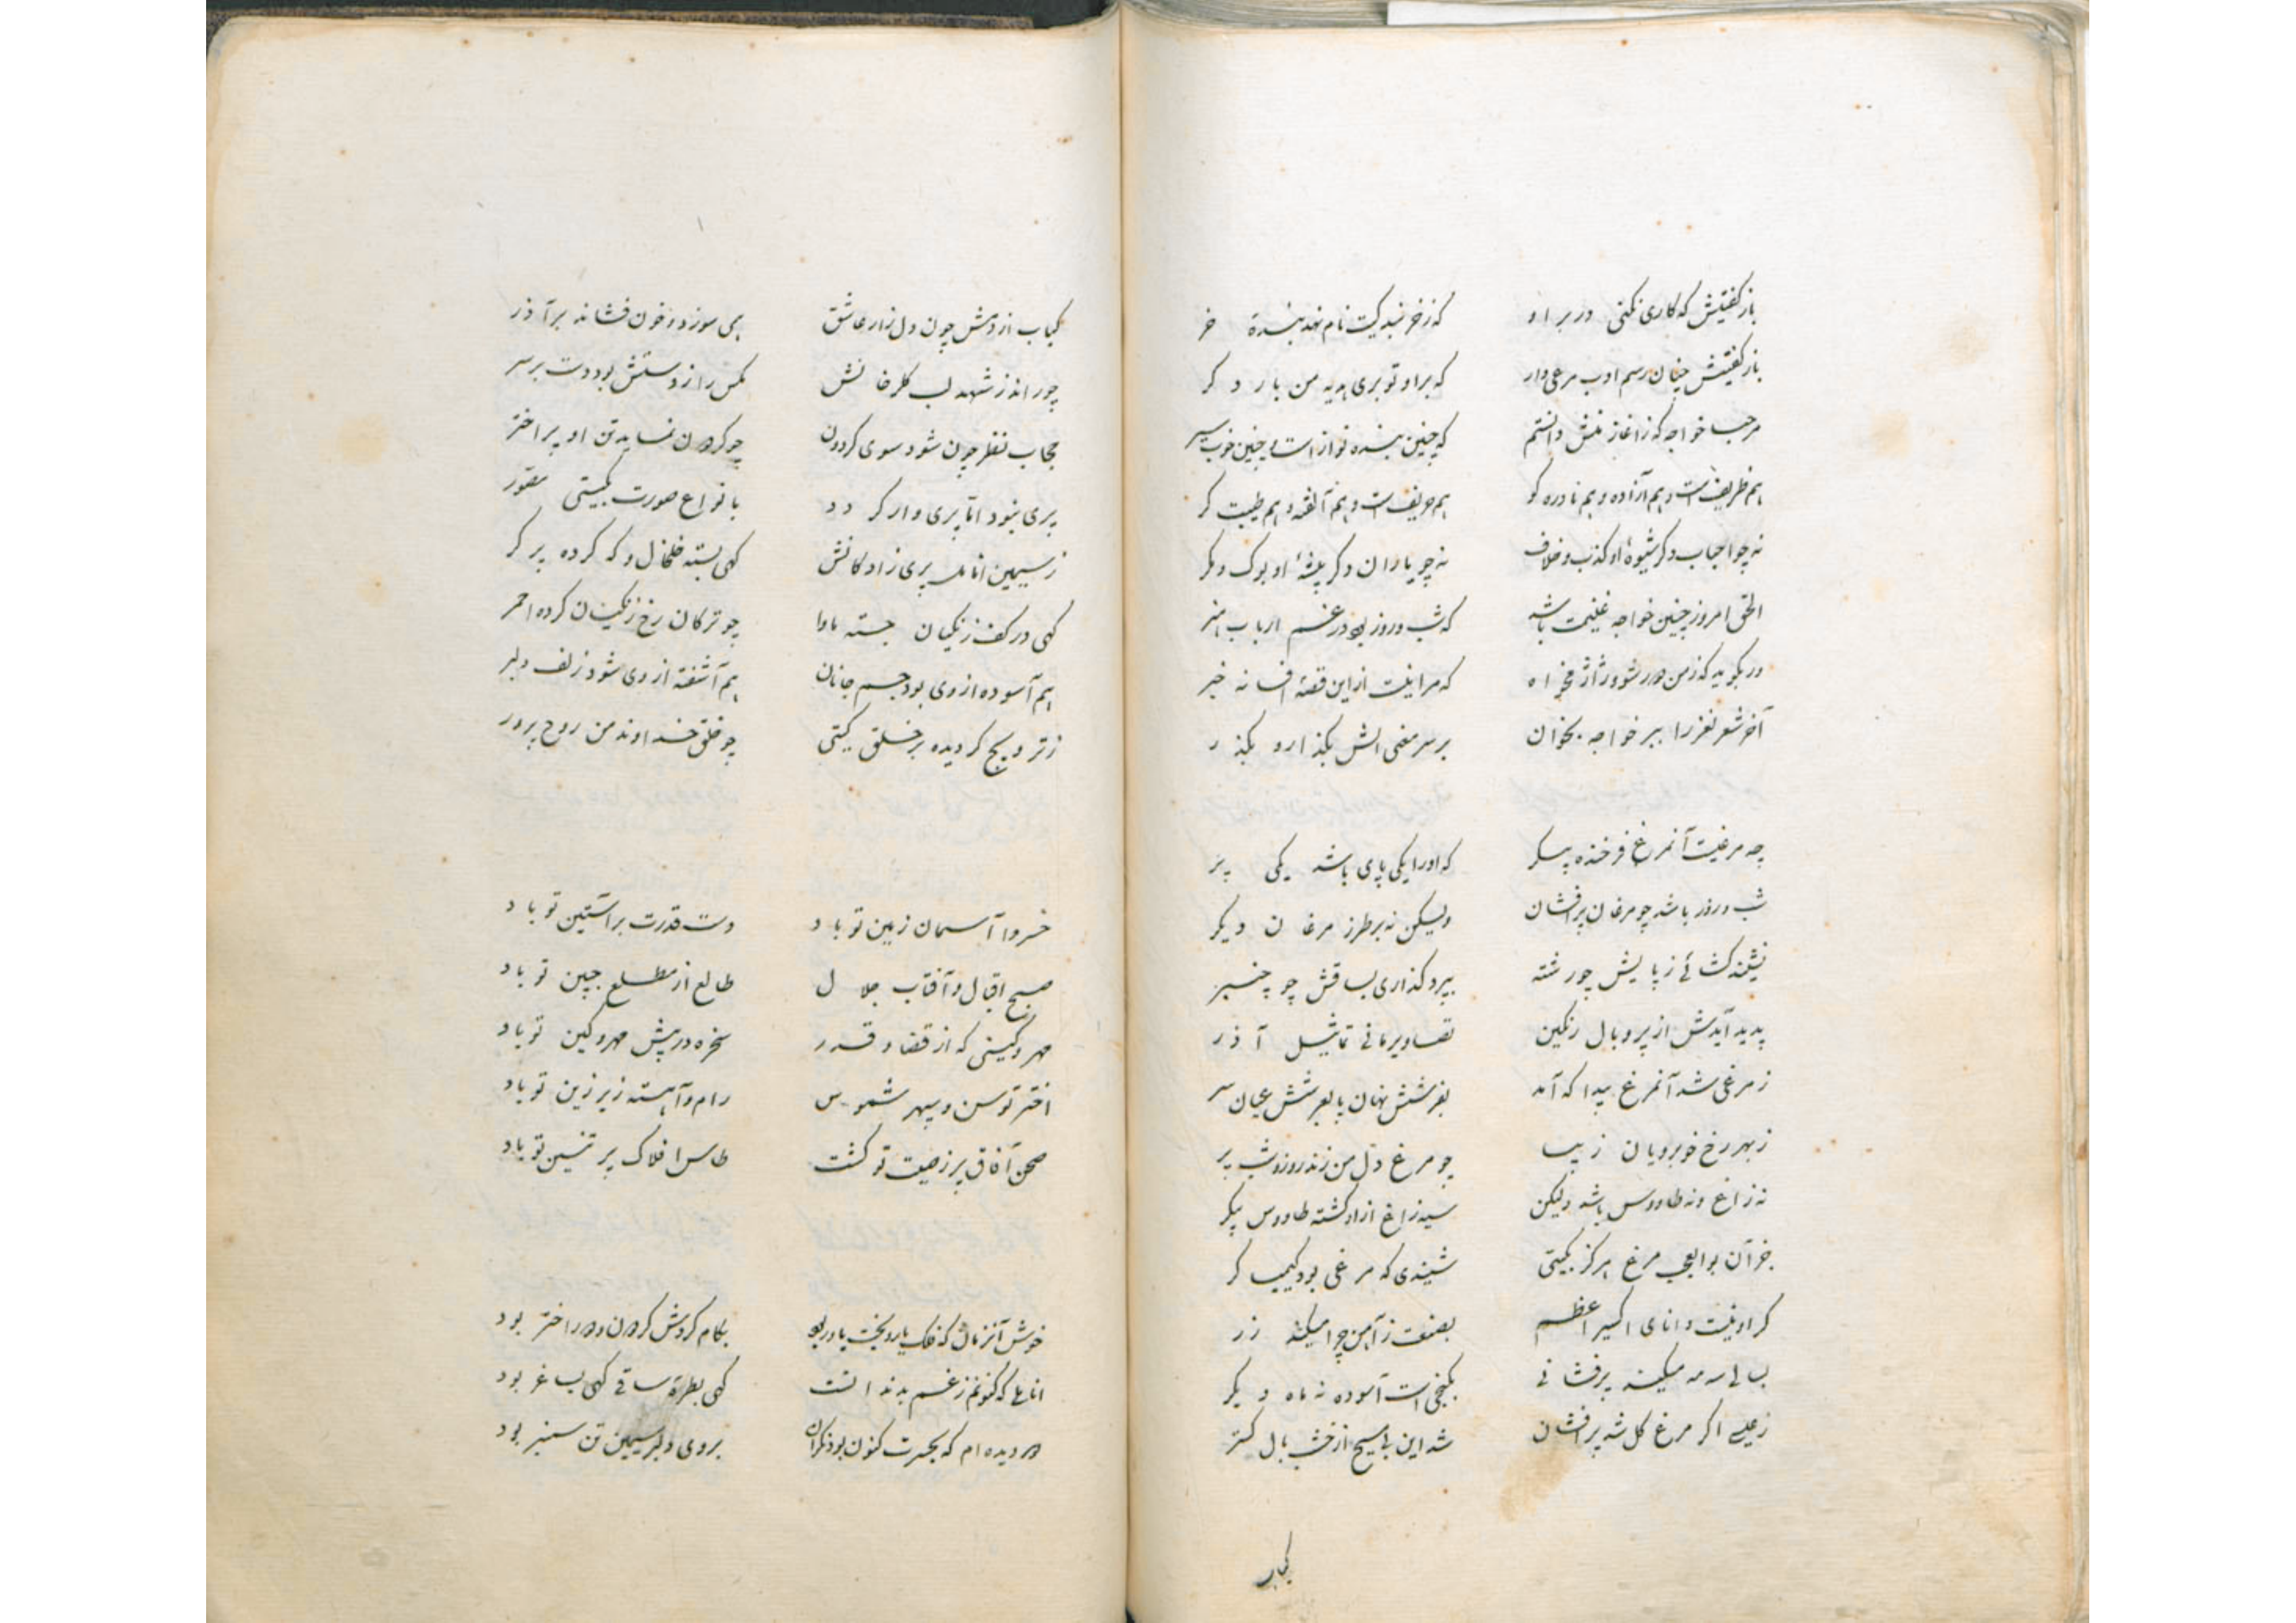 باز گفتیش که کاری نکنی در بر او که ز خر بنده کیت نام نهد بندهٔ خر
باز گفتیش چنان رسم ادب مرعی دار که بر او تو بری هدیه من بار دگر
مرحبا خواجه که ز آغاز منش دانستم که چنین بنده نواز است و چنین خوب سیر
هم ظریف است و هم آزاده و هم نادره گو هم حریف است و هم آلفته و هم طیبت گر
نه چو احباب دگر شیوهٔ او کذب و خلاف نه چو یاران دگر پیشهٔ او بوک و مگر
الحق امروز چنین خواجه غنیمت باشد که شب و روز بود در غم ارباب هنر
ور بگوید که ز من دور شو و ژاژ مخواه که مرا نیست از این قصه افسانه خبر
آخر شعر نغز را ببر خواجه بخوان بر سر مضحی الش بگذار و بگذر
چه مرغیست آنمرغ فرخنده پیکر که او را یکی پای باشد یکی پر
شب و روز باشد چو مرغان پرافشان ولیکن نه بر طرز مرغان دیگر
نبندند کشان ز پایش چو رشته بپرد گذاری بساقش چو چنبر
پدید آیدش از پر و بال رنگین تصاویر مانی تماثیل آذر
ز مرغی شد آنمرغ پیدا که آمد بفرشش نهان پا بعرشش عیان سر
ز بهر رخ خوبرویان زیبا چو مرغ دل من زند روز و شب پر
نه زاغ و نه طاووس باشد ولیکن سیه زاغ از او گشته طاووس پیکر
جز آن بوالعجب مرغ هرگز بگیتی شنیدی که مرغی بود کیمیاگر
گر او نیست دانای اکسیر اعظم بصنعت ز آهن چرا میکند زر
بسالی سه مه میکند پرفشانی بکنجی است آسوده نه ماه دیگر
ز عیسی اگر مرغ گل شد پرافشان شد این بی مسیح از خشب بال گستر
کباب
کباب از دمش چون دل زار عاشق همی سوزد و خون فشاند بر آذر
چو راند ز شهد لب گلرخانش مگس را ز دستش بود دست بر سر
حجاب نظر چون شود سوی گردون چو گردون نماید تن او پر اختر
پری نبود اما پری وار گردد بانواع صورت بگیتی مصور
ز سیمین انامل پری زادگانش گهی بسته خلخال و گه کرده پرگر
گهی در کف زنگیان جسته ماوا چو ترکان رخ زنگیان کرده احمر
هم آسوده از وی بود جسم جانان هم آشفته از وی شود زلف دلبر
ز ترویج گردیده بر خلق گیتی چو خلق خداوند من روح پرور
خسروا آسمان زمین تو باد دست قدرت بر آستین تو باد
صبح اقبال و آفتاب جلال طالع از مطلع جبین تو باد
مهر و کینی که از قضا و قدر سخره در پیش مهر و کین تو باد
اختر توسن و سپهر شموس رام و آهسته زیر زین تو باد
صحن آفاق پر ز صیت تو گشت طاس افلاک پر طنین تو باد
خوش آنزمان که فلک یار و بخت یاور بود بکام گردش گردون و دور اختر بود
اناملی که کنونم ز غم بدندانست گهی بطره ساقی گهی بساغر بود
دو دیده ام که بحسرت کنون بود نگران بروی دلبر سیمین تن سمنبر بود